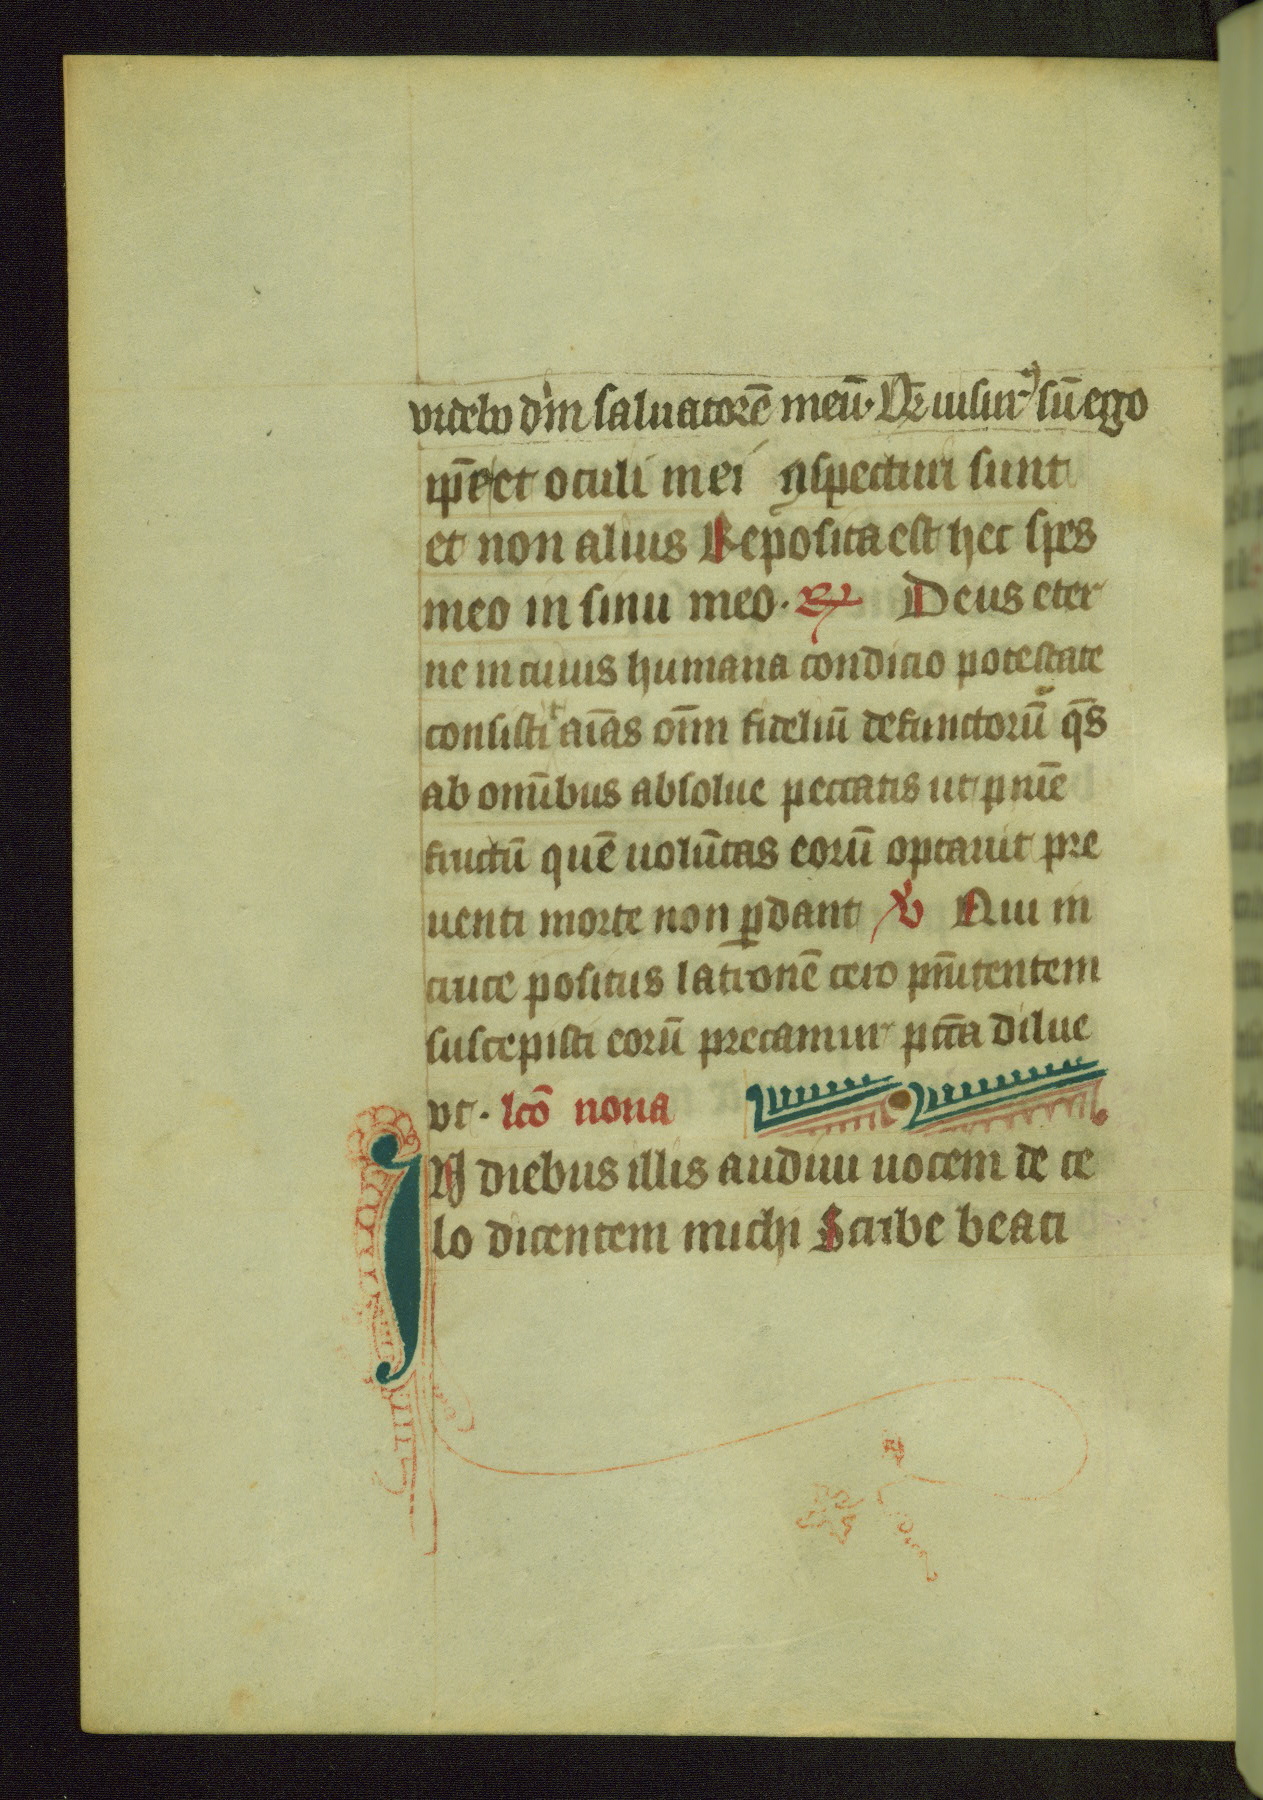 videbo dn̄m saluatorē meū. Que uisur⁹ sū ego
ip̄e et oculi mei ɔspecturi sunt
et non alius Reposita est hec spes
meo in sinu meo. ℟ Deus eter
ne in cuius humana condicio potestate
consistiͭ aīas om̄i fideliū defunctorū q̄s
ab omībus absolue peccatis ut pnīe
fructū quē uolūtas eorū optauit pre
uenti morte non ꝑdant ℣ Qui in
cruce positus latronē cero pn̄itentem
suscepisti eorū precamur pctā dilue
vt. lcō nona
IN diebus illis audiui uocem de ce
lo dicentem michi Scribe beati